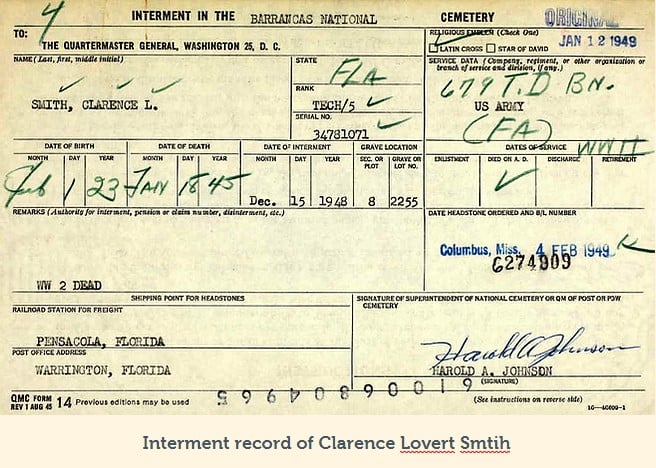 4
INTERMENT IN THE BARRANCAS NATIONAL CEMETERY
ORIGINAL
TO:
THE QUARTERMASTER GENERAL, WASHINGTON 25, D. C.
RELIGIOUS EMBLEM (Check One)
LATIN CROSS STAR OF DAVID
JAN 12 1949
NAME (Last, first, middle initial)
SMITH, CLARENCE L.
STATE
FLA
RANK
TECH/5
SERIAL NO.
34781071
SERVICE DATA (Company, regiment, or other organization or branch of service and division, if any.)
679 T.D BN.
US ARMY
(FA)
DATE OF BIRTH DATE OF DEATH DATE OF INTERMENT GRAVE LOCATION
DATES OF SERVICE WWII
MONTH DAY YEAR MONTH DAY YEAR MONTH DAY YEAR SEC. OR PLOT GRAVE OR LOT NO.
ENLISTMENT DIED ON A. D. DISCHARGE RETIREMENT
Feb 1 23 JAN 18 45 Dec. 15 1948 8 2255
REMARKS (Authority for interment, pension or claim number, disinterment, etc.)
WW 2 DEAD
DATE HEADSTONE ORDERED AND B/L NUMBER
Columbus, Miss. 4 FEB 1949
6274909
SHIPPING POINT FOR HEADSTONES
RAILROAD STATION FOR FREIGHT
PENSACOLA, FLORIDA
POST OFFICE ADDRESS
WARRINGTON, FLORIDA
SIGNATURE OF SUPERINTENDENT OF NATIONAL CEMETERY OR QM OF POST OR POW CEMETERY
Harold A Johnson
HAROLD A. JOHNSON
(SIGNATURE)
QMC FORM
REV 1 AUG 45 14 Previous editions may be used
(See instructions on reverse side)
16—40609-1
Interment record of Clarence Lovert Smtih